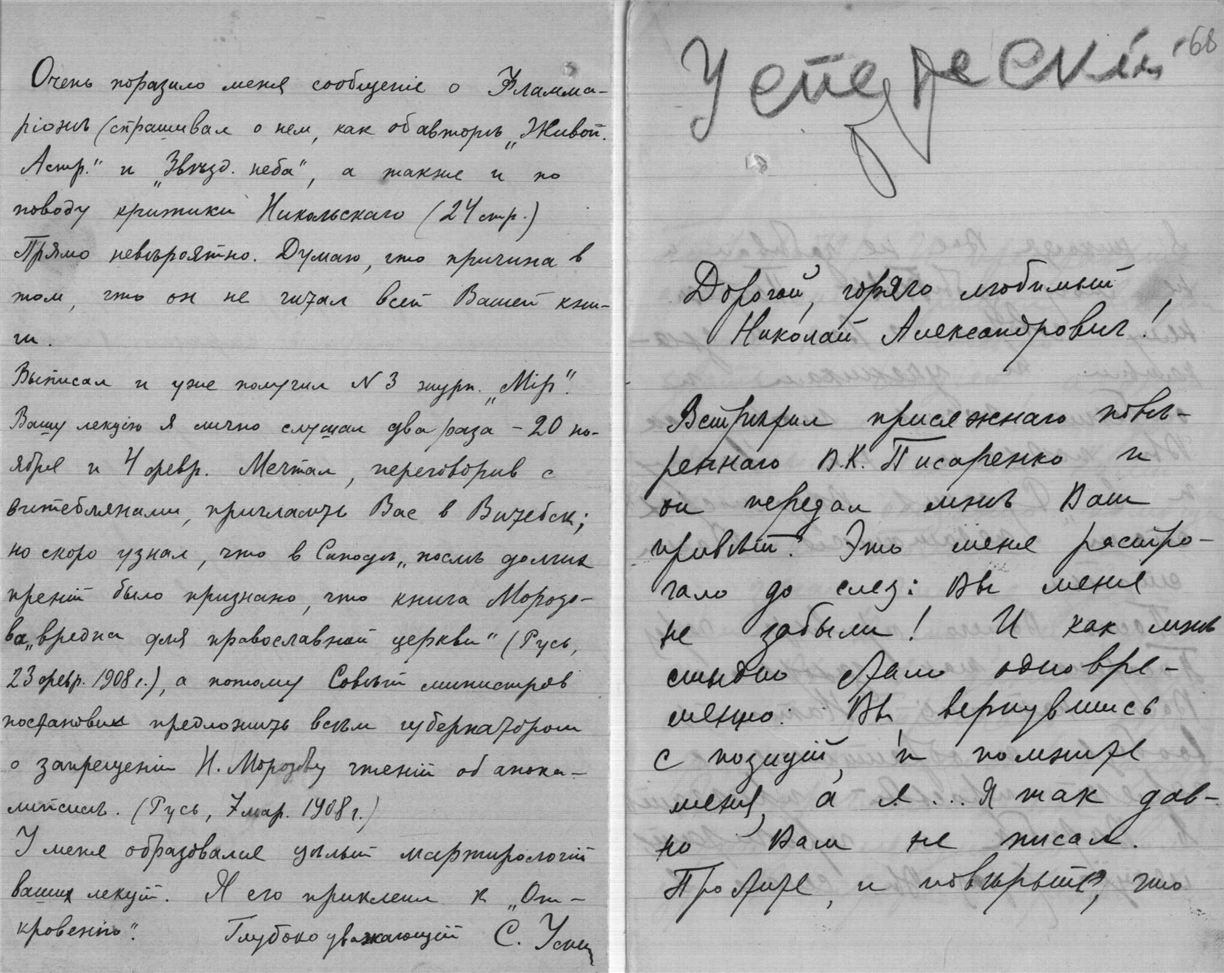 Очень поразило меня сообщеніе о Фламма-
ріонѣ (спрашивал о нем, как об авторѣ „Живой
Астр.“ и „Звѣзд. неба“, а также и по
поводу критики Никольскаго (24 стр.)
Прямо невѣроятно. Думаю, что причина в
том, что он не читал всей Вашей кни-
ги.
Выписал и уже получил N 3 журн. „Мір“.
Вашу лекцію я лично слушал два раза – 20 но-
ября и 4 февр. Мечтал, переговорив с
витеблянами, пригласить Вас в Витебск;
но скоро узнал, что в Синодѣ „послѣ долгих
преній было признано, что книга Морозо-
ва „вредна для православной церкви“ (Русь,
23 февр. 1908 г.), а потому Совѣт министров
постановил предложить всѣм губернаторам
о запрещеніи Н. Морозову чтеній об апока-
липсисѣ. (Русь, 7 мар. 1908 г.)
У меня образовался цѣлый мартирологій
ваших лекцій. Я его приклеил к „От-
кровенію“. Глубоко уважающій С. Успен
68
Успенскій
Дорогой, горячо любимый
Николай Александрович!
Встрѣтил присяжнаго повѣ-
реннаго В.К. Писаренко и
он передал мнѣ Ваш
привѣт. Это меня растро-
гало до слез: Вы меня
не забыли! И как мнѣ
стыдно стало одновре-
менно: Вы, вернувшись
с позицій, и помните
меня, а я... Я так дав-
но Вам не писал.
Простите, и повѣрьте, что